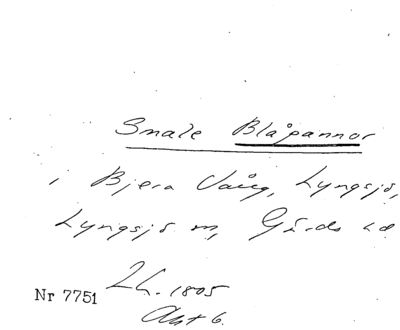 Smale Blåpannor
i Bjera Vång, Lyngsjö,
Lyngsjö sn, Gärds hd
Lk. 1805
Nr 7751
Akt 6.